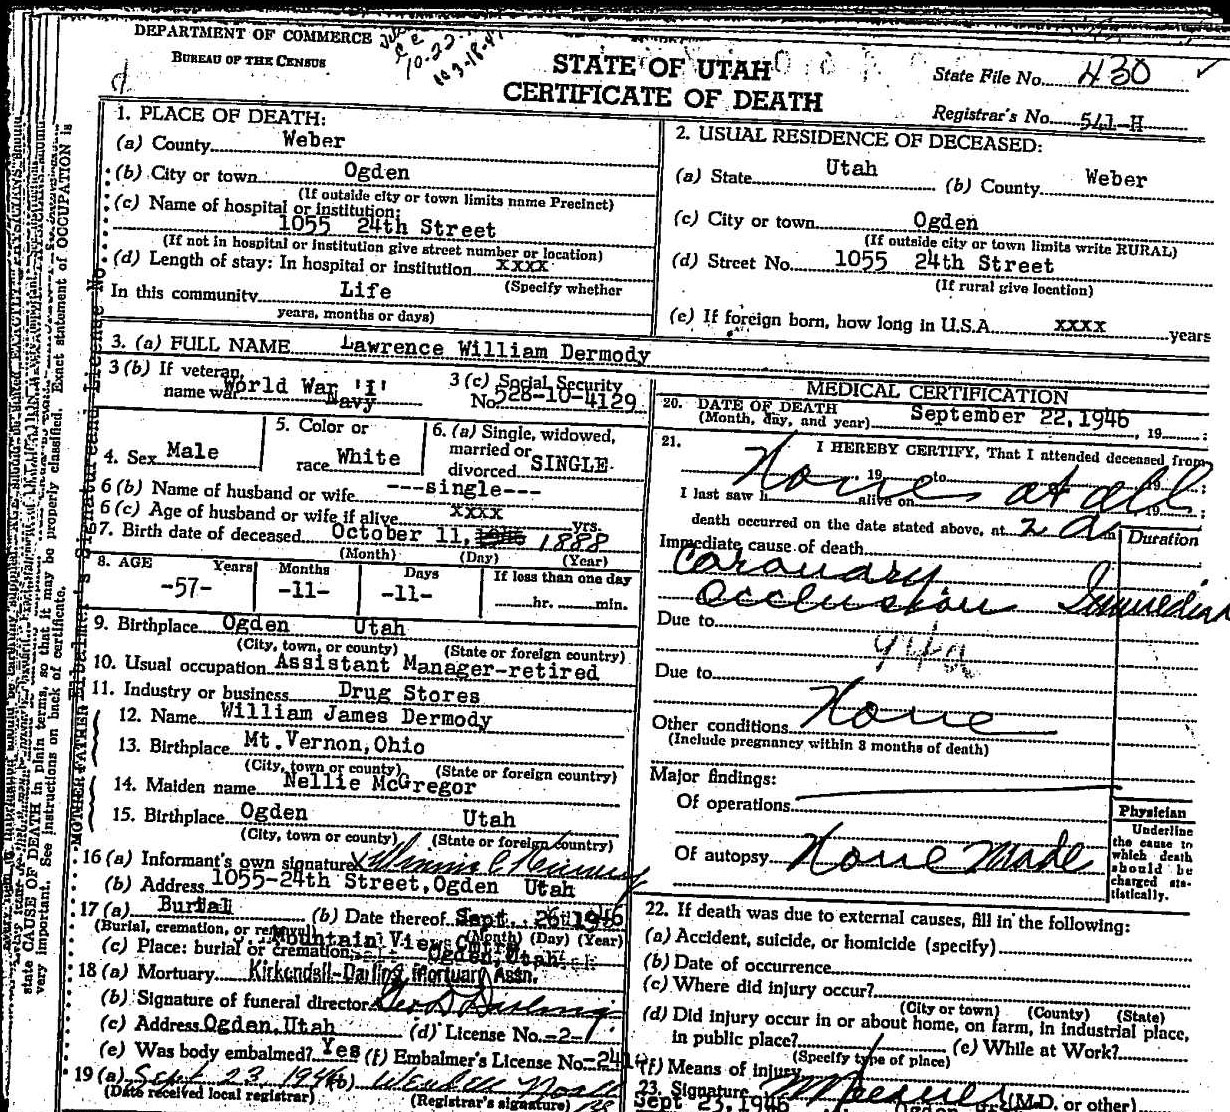 DEPARTMENT OF COMMERCE
BUREAU OF THE CENSUS
10-22-
10 3-18-47
STATE OF UTAH
CERTIFICATE OF DEATH
State File No. 430
Registrar's No. 541-H
1. PLACE OF DEATH:
(a) County Weber
(b) City or town Ogden
(If outside city or town limits name Precinct)
(c) Name of hospital or institution:
1055 24th Street
(If not in hospital or institution give street number or location)
(d) Length of stay: In hospital or institution XXXX
(Specify whether
In this community Life
years, months or days)
2. USUAL RESIDENCE OF DECEASED:
(a) State Utah (b) County Weber
(c) City or town Ogden
(If outside city or town limits write RURAL)
(d) Street No. 1055 24th Street
(If rural give location)
(e) If foreign born, how long in U.S.A. XXXX years
3. (a) FULL NAME Lawrence William Dermody
3 (b) If veteran, name war World War "I" Navy
3 (c) Social Security No. 528-10-4129
4. Sex Male
5. Color or race White
6. (a) Single, widowed, married or divorced SINGLE
6 (b) Name of husband or wife ---single---
6 (c) Age of husband or wife if alive XXXX yrs.
7. Birth date of deceased October 11, 1888
(Month) (Day) (Year)
8. AGE Years Months Days If less than one day
-57- -11- -11- hr. min.
9. Birthplace Ogden Utah
(City, town, or county) (State or foreign country)
10. Usual occupation Assistant Manager-retired
11. Industry or business Drug Stores
FATHER
12. Name William James Dermody
13. Birthplace Mt. Vernon, Ohio
(City, town or county) (State or foreign country)
MOTHER
14. Maiden name Nellie McGregor
15. Birthplace Ogden Utah
(City, town or county) (State or foreign country)
16 (a) Informant's own signature
(b) Address 1055-24th Street, Ogden Utah
17 (a) Burial (b) Date thereof Sept. 26 1946
(Burial, cremation, or removal) (Month) (Day) (Year)
(c) Place: burial or cremation Mountain View Ogden, Utah
18 (a) Mortuary Kirkendall-Darling Mortuary Assn.
(b) Signature of funeral director Geo D Darling
(c) Address Ogden, Utah (d) License No. -2-
(e) Was body embalmed? Yes (f) Embalmer's License No. -241-
19 (a) Sept 23, 1946 (b)
(Date received local registrar) (Registrar's signature)
MEDICAL CERTIFICATION
20. DATE OF DEATH
(Month, day, and year) September 22, 1946, 19
21. I HEREBY CERTIFY, That I attended deceased from
None at all
19 to 19 ;
I last saw h alive on 19 ;
death occurred on the date stated above, at 2 a m
Duration
Immediate cause of death
Coronary
Occlusion
Due to
94a
Due to
Other conditions None
(Include pregnancy within 3 months of death)
Major findings:
Of operations
Of autopsy None Made
Physician
Underline
the cause to
which death
should be
charged sta-
tistically.
22. If death was due to external causes, fill in the following:
(a) Accident, suicide, or homicide (specify)
(b) Date of occurrence
(c) Where did injury occur?
(City or town) (County) (State)
(d) Did injury occur in or about home, on farm, in industrial place,
in public place? (e) While at Work?
(Specify type of place)
(f) Means of injury
23. Signature (M.D. or other)
Sept 23, 1946
state CAUSE OF DEATH in plain terms, so that it may be properly classified. Exact statement of OCCUPATION is
very important. See instructions on back of certificate.